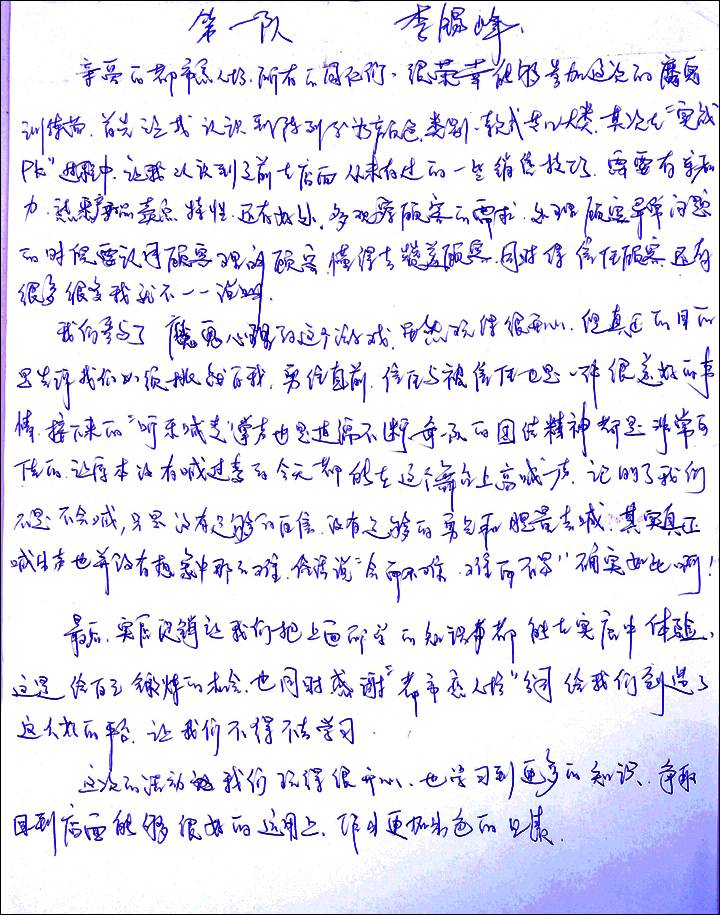 第一队 李锡峰
亲爱的都市恋人坊、所有的同仁们、很荣幸能够参加这次的魔鬼
训练营、首先让我认识到陈列分为色、类别、款式大类、其次在“实战
PK”过程中、让我认识到了前去店面从来有过的一些销售技巧、需要有亲和
力、熟悉产品卖点、特性、还有如何、多观察顾客的需求、处理顾客异常问题
的时候要认同顾客理解顾客、懂得去赞美顾客、同时得信任顾客、还有
很多很多我就不一一说明.
我们参与了魔鬼心理的这个游戏、虽然玩得很开心、但真正的目的
是告诉我们必须挑战自我、勇往直前、信任与被信任也是一件很美好的事
情、接下来的“听乐喊麦”掌声也是连绵不断每队的团结精神都是非常可
佳的、让原本没有喊过麦的今天都能在这个舞台上高喊一声、证明了我们
不是不会喊，只是没有足够的自信、没有足够的勇气和胆量去喊、其实真正
喊出声也并没有想象中那么难、俗话说“会而不难、难而不会”确实如此啊！
最后、实店演练让我们把上面所学的知识都能在实店中体验、
这是给自己锻炼的机会、也同时感谢“都市恋人坊”公司给我们创造了
这么大的平台、让我们不得不去学习.
这次的活动我们玩得很开心、也学习到更多的知识、争取
回到店面能够很好的运用上、作出更加出色的业绩.